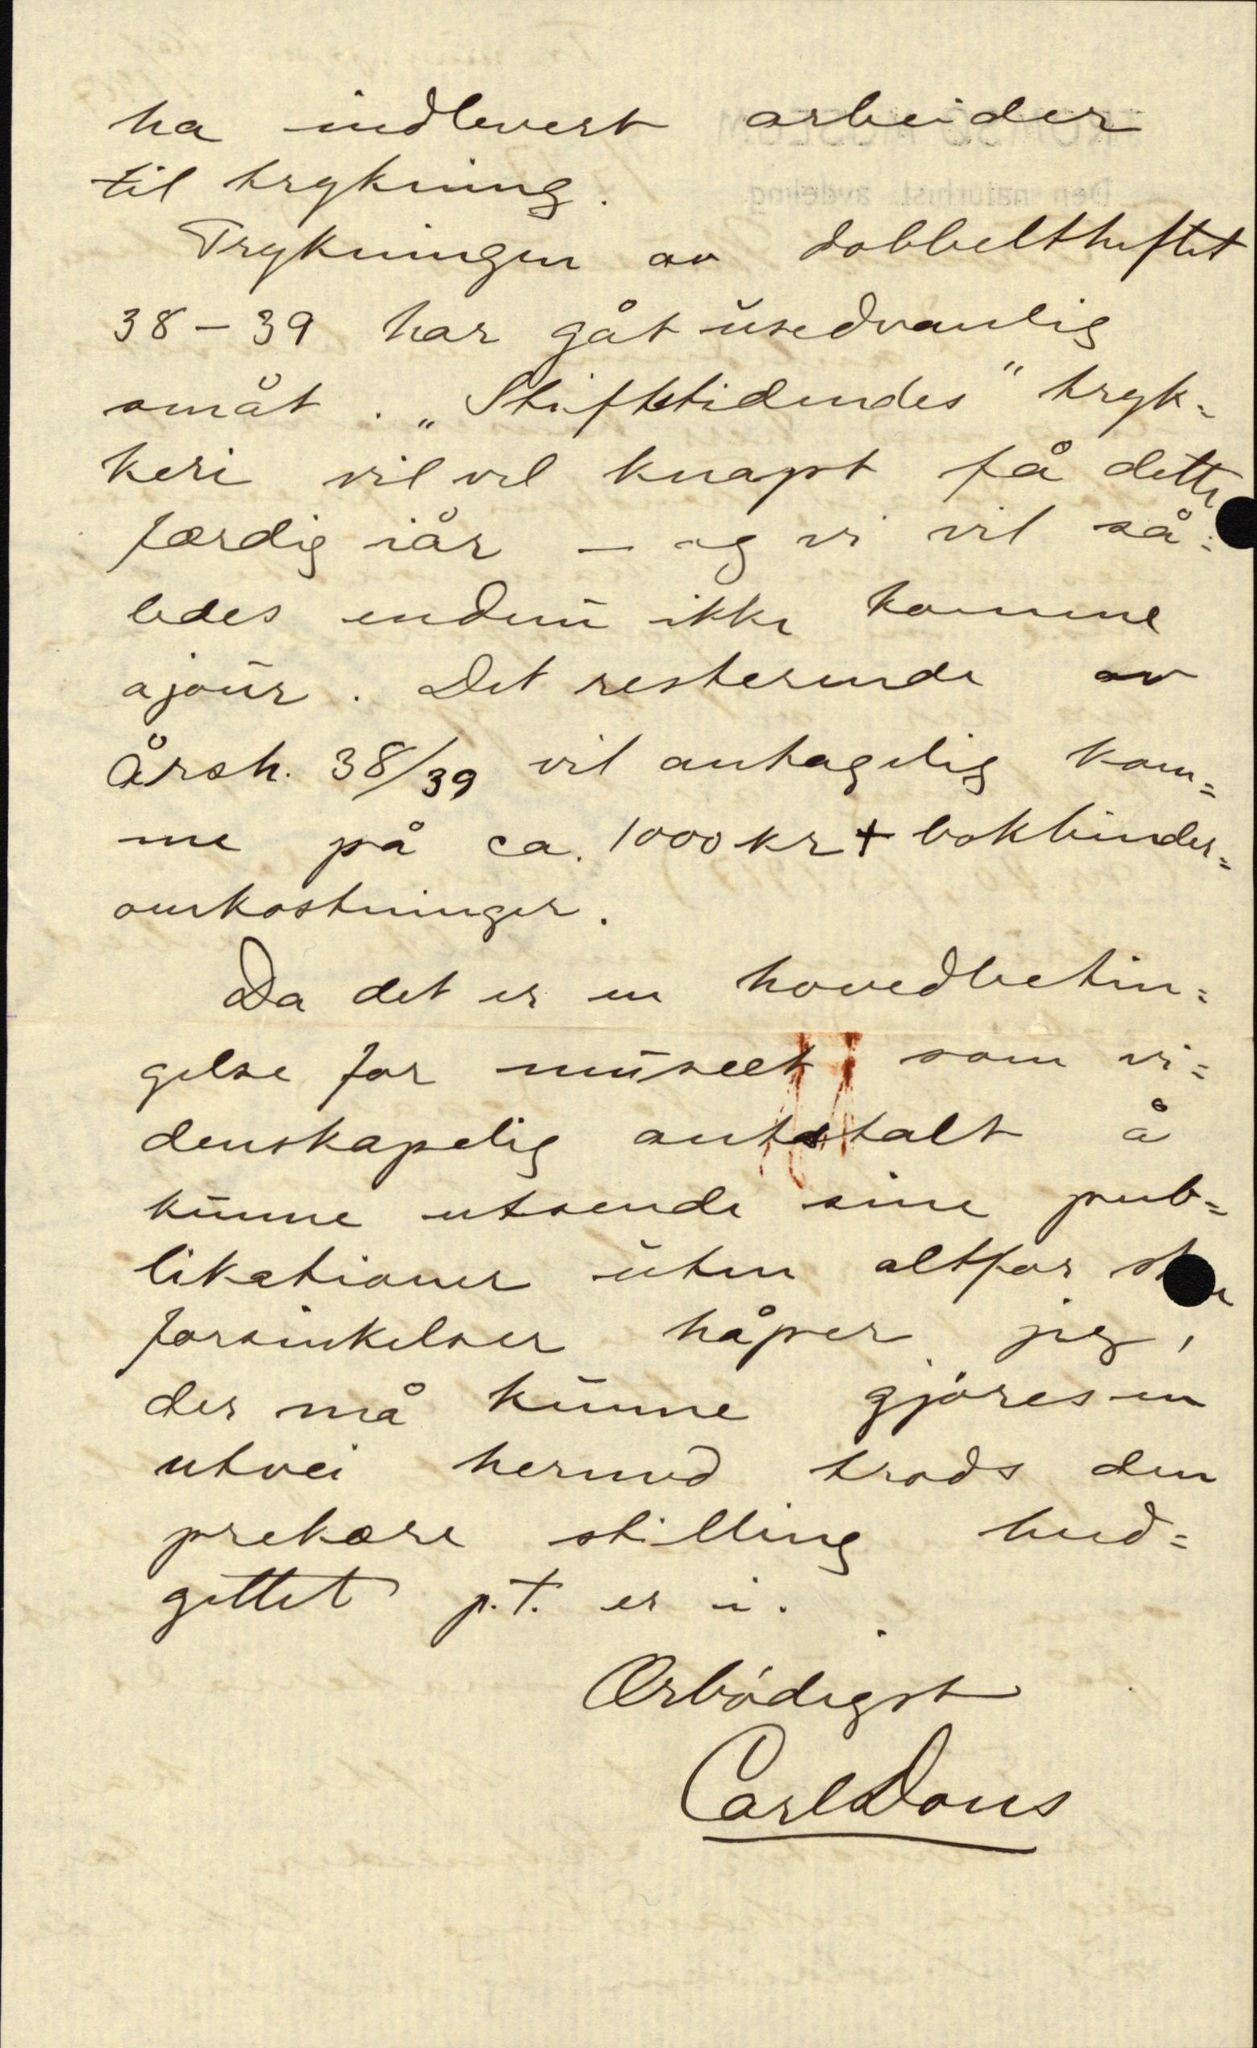 ha indlevert arbeider
til trykning.
Trykningen av dobbeltheftet
38 - 39 har gåt usedvanlig
småt. „Stiftstidendes" tryk=
keri vil vel knapt få dette
færdig iår - og vi vil så=
ledes endnu ikke komme
ajour. Det resterende av
Årsh. 38/39 vil antagelig kom=
me på ca. 1000 kr + bokbinder=
omkostninger.
Da det er en hovedbetin=
gelse for museet som vi=
denskapelig anstalt å
kunne utsende sine pub=
likationer uten altfor
forsinkelser håper jeg,
der må kunne gjöres en
utvei hermed trods den
prekære stilling bud=
gettet p.t. er i.
Ærbödigst
Carl Dons